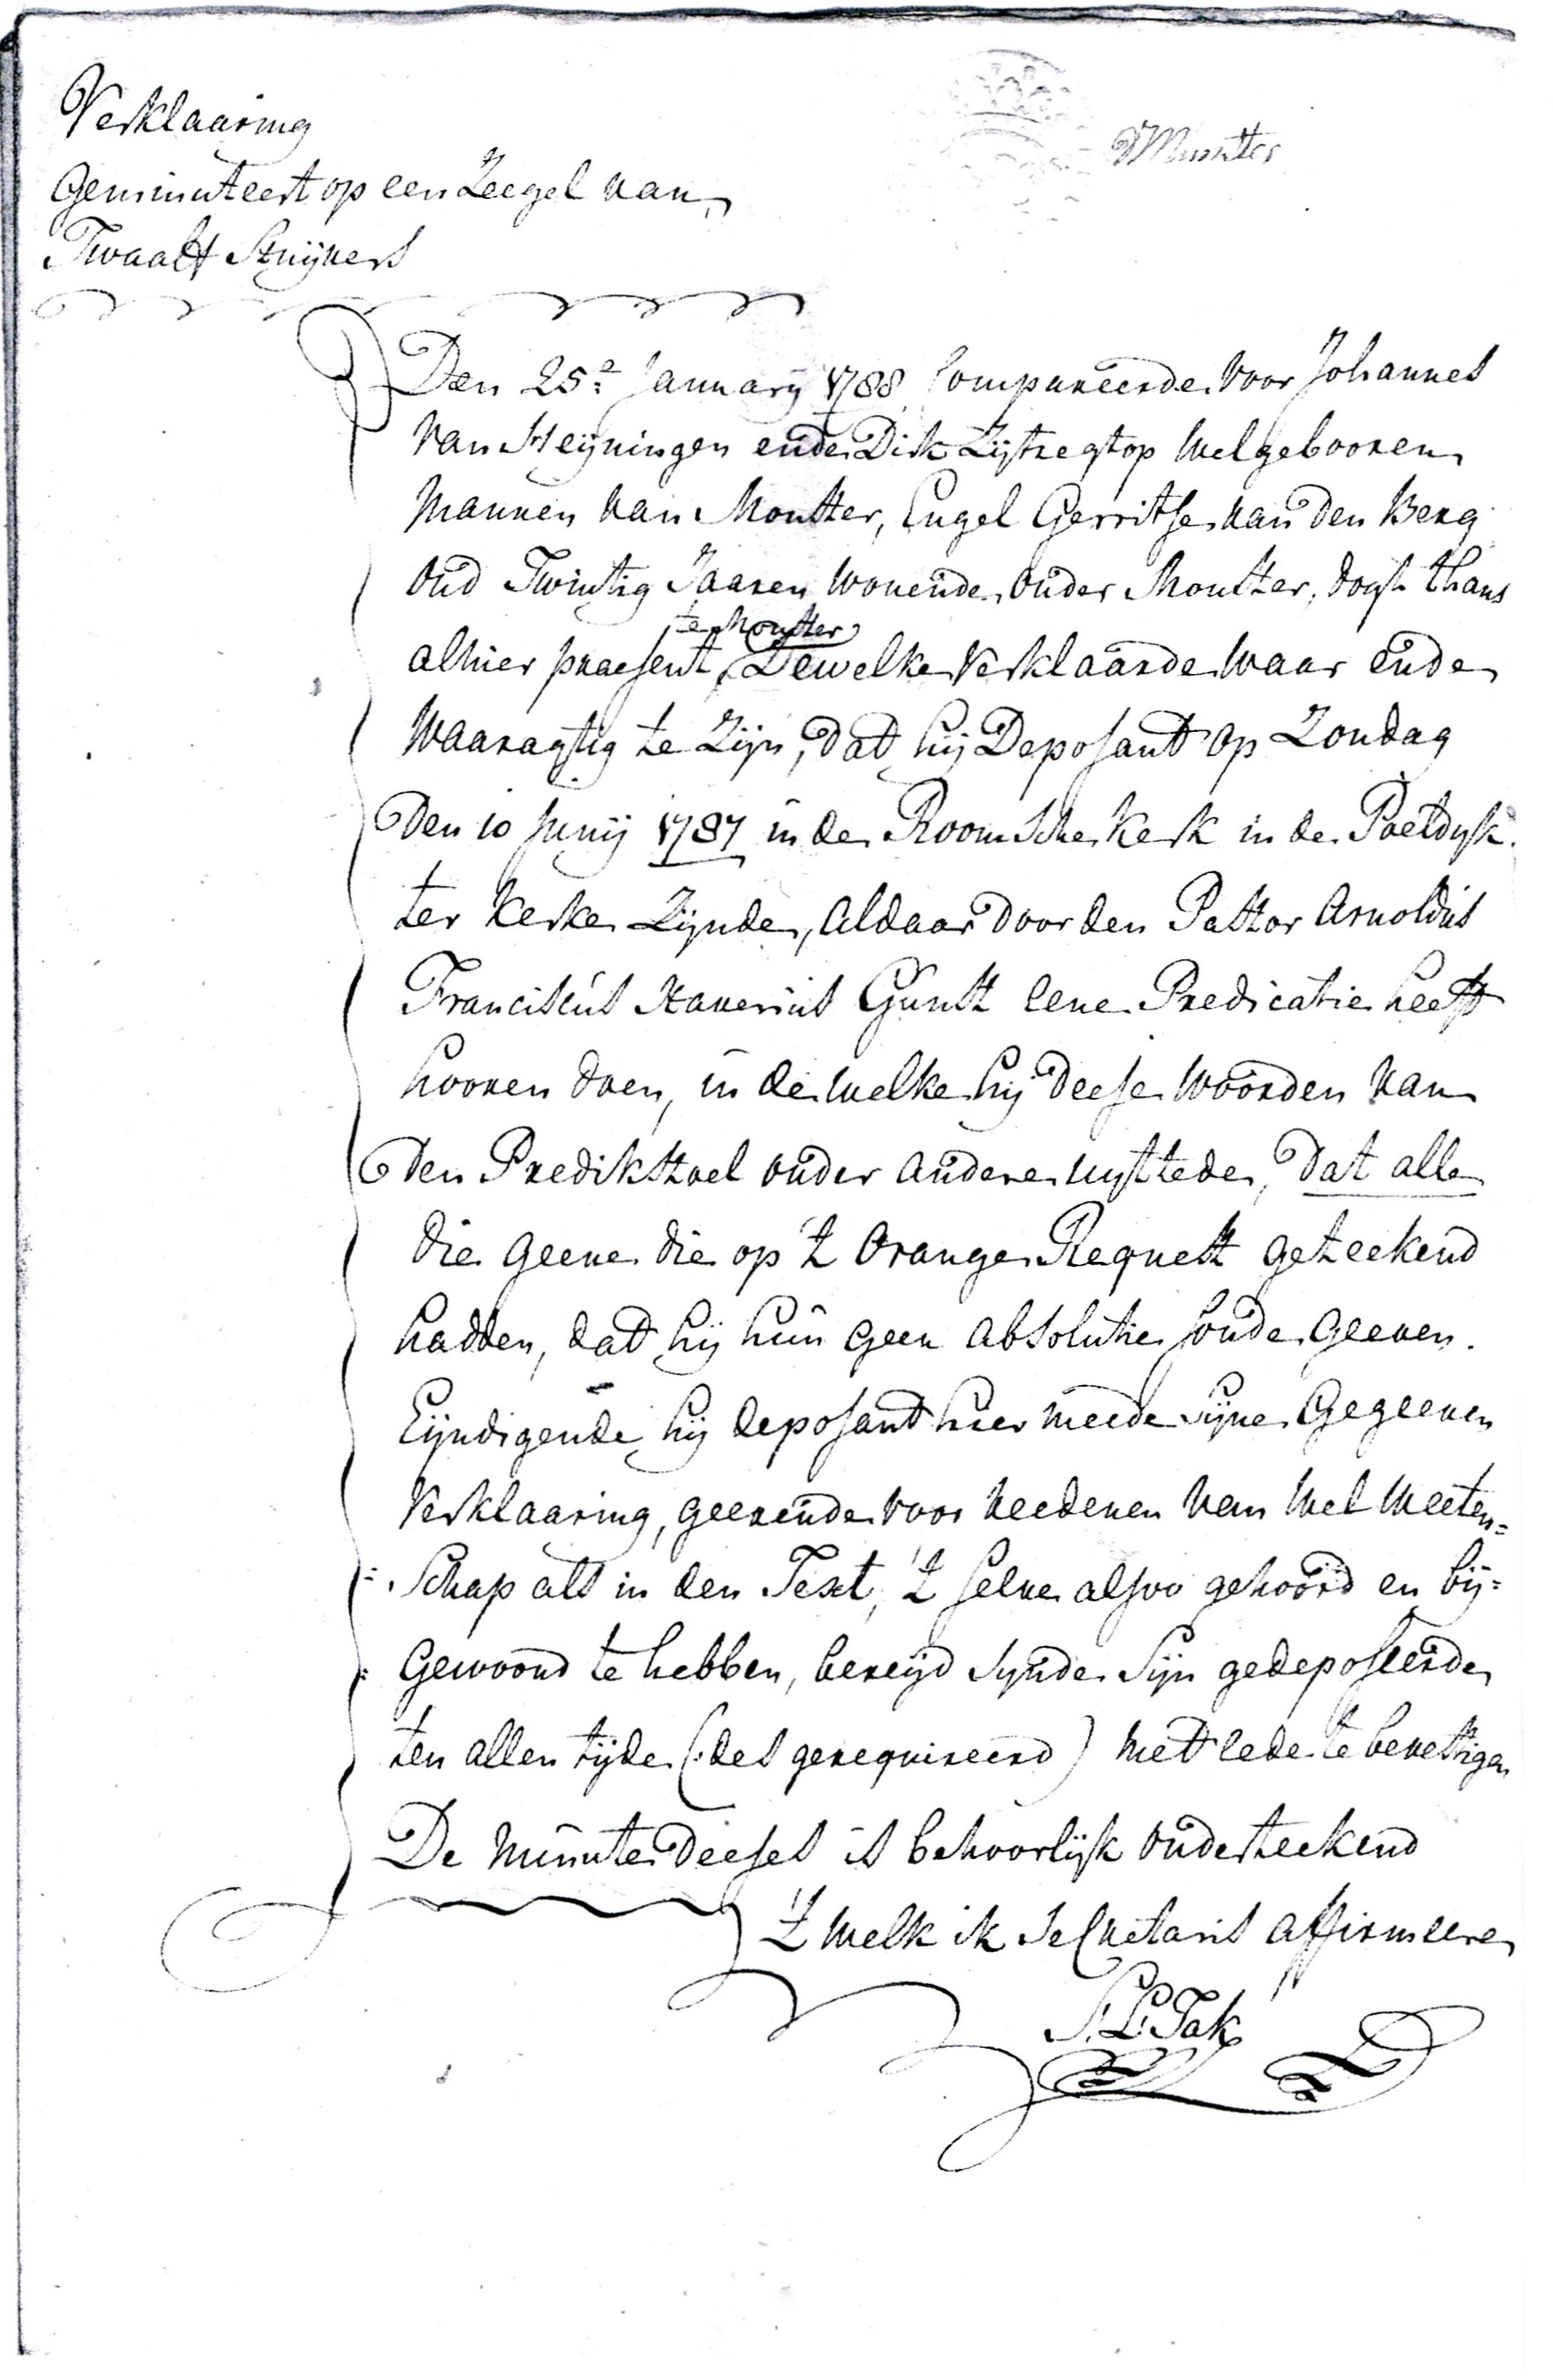 Verklaaring
Geminuteert op een Zeegel van
Twaalf Stuijvers
Munster
Den 25e January 1788 Compareerde voor Johannes
van Heijningen ende Dirk Zijtregtop Welgebooren
Mannen van Monster, Engel Gerritse van den Berg
Oud Twintig Jaaren Wonende onder Monster, dogh thans
te Monster
alhier praesent, Dewelke Verklaarde Waar ende
Waaragtig te Zijn, dat hij Deposant op Zondag
Den 10 Junij 1787 in de Roomsche Kerk in de Poeldijk
ter Kerke Zijnde, Aldaar door den Pastor Arnoldus
Franciscus Xaverius Gunst eene Predicatie heeft
hooren doen, in de welke hij deese Woorden van
Den Predikstoel onder andere uijttede, dat alle
die geene die op 't Orange Request geteekend
hadden, dat hij hun geen absolutie soude geeven.
Eijndigende hij deposant hier meede sijne Gegeeven
Verklaaring, geevende voor reedenen van Wel Weeten=
=Schap als in den Text, 't selve alsoo gehoord en bij=
=Gewoond te hebben, bereijd sijnde sijn gedeposeerde
ten allen tijde (des gerequireerd) met eede te bevestigen
De Minute deeses is behoorlijk ondertteekend
't Welk ik Secretaris affirmeere
S. L. Tak